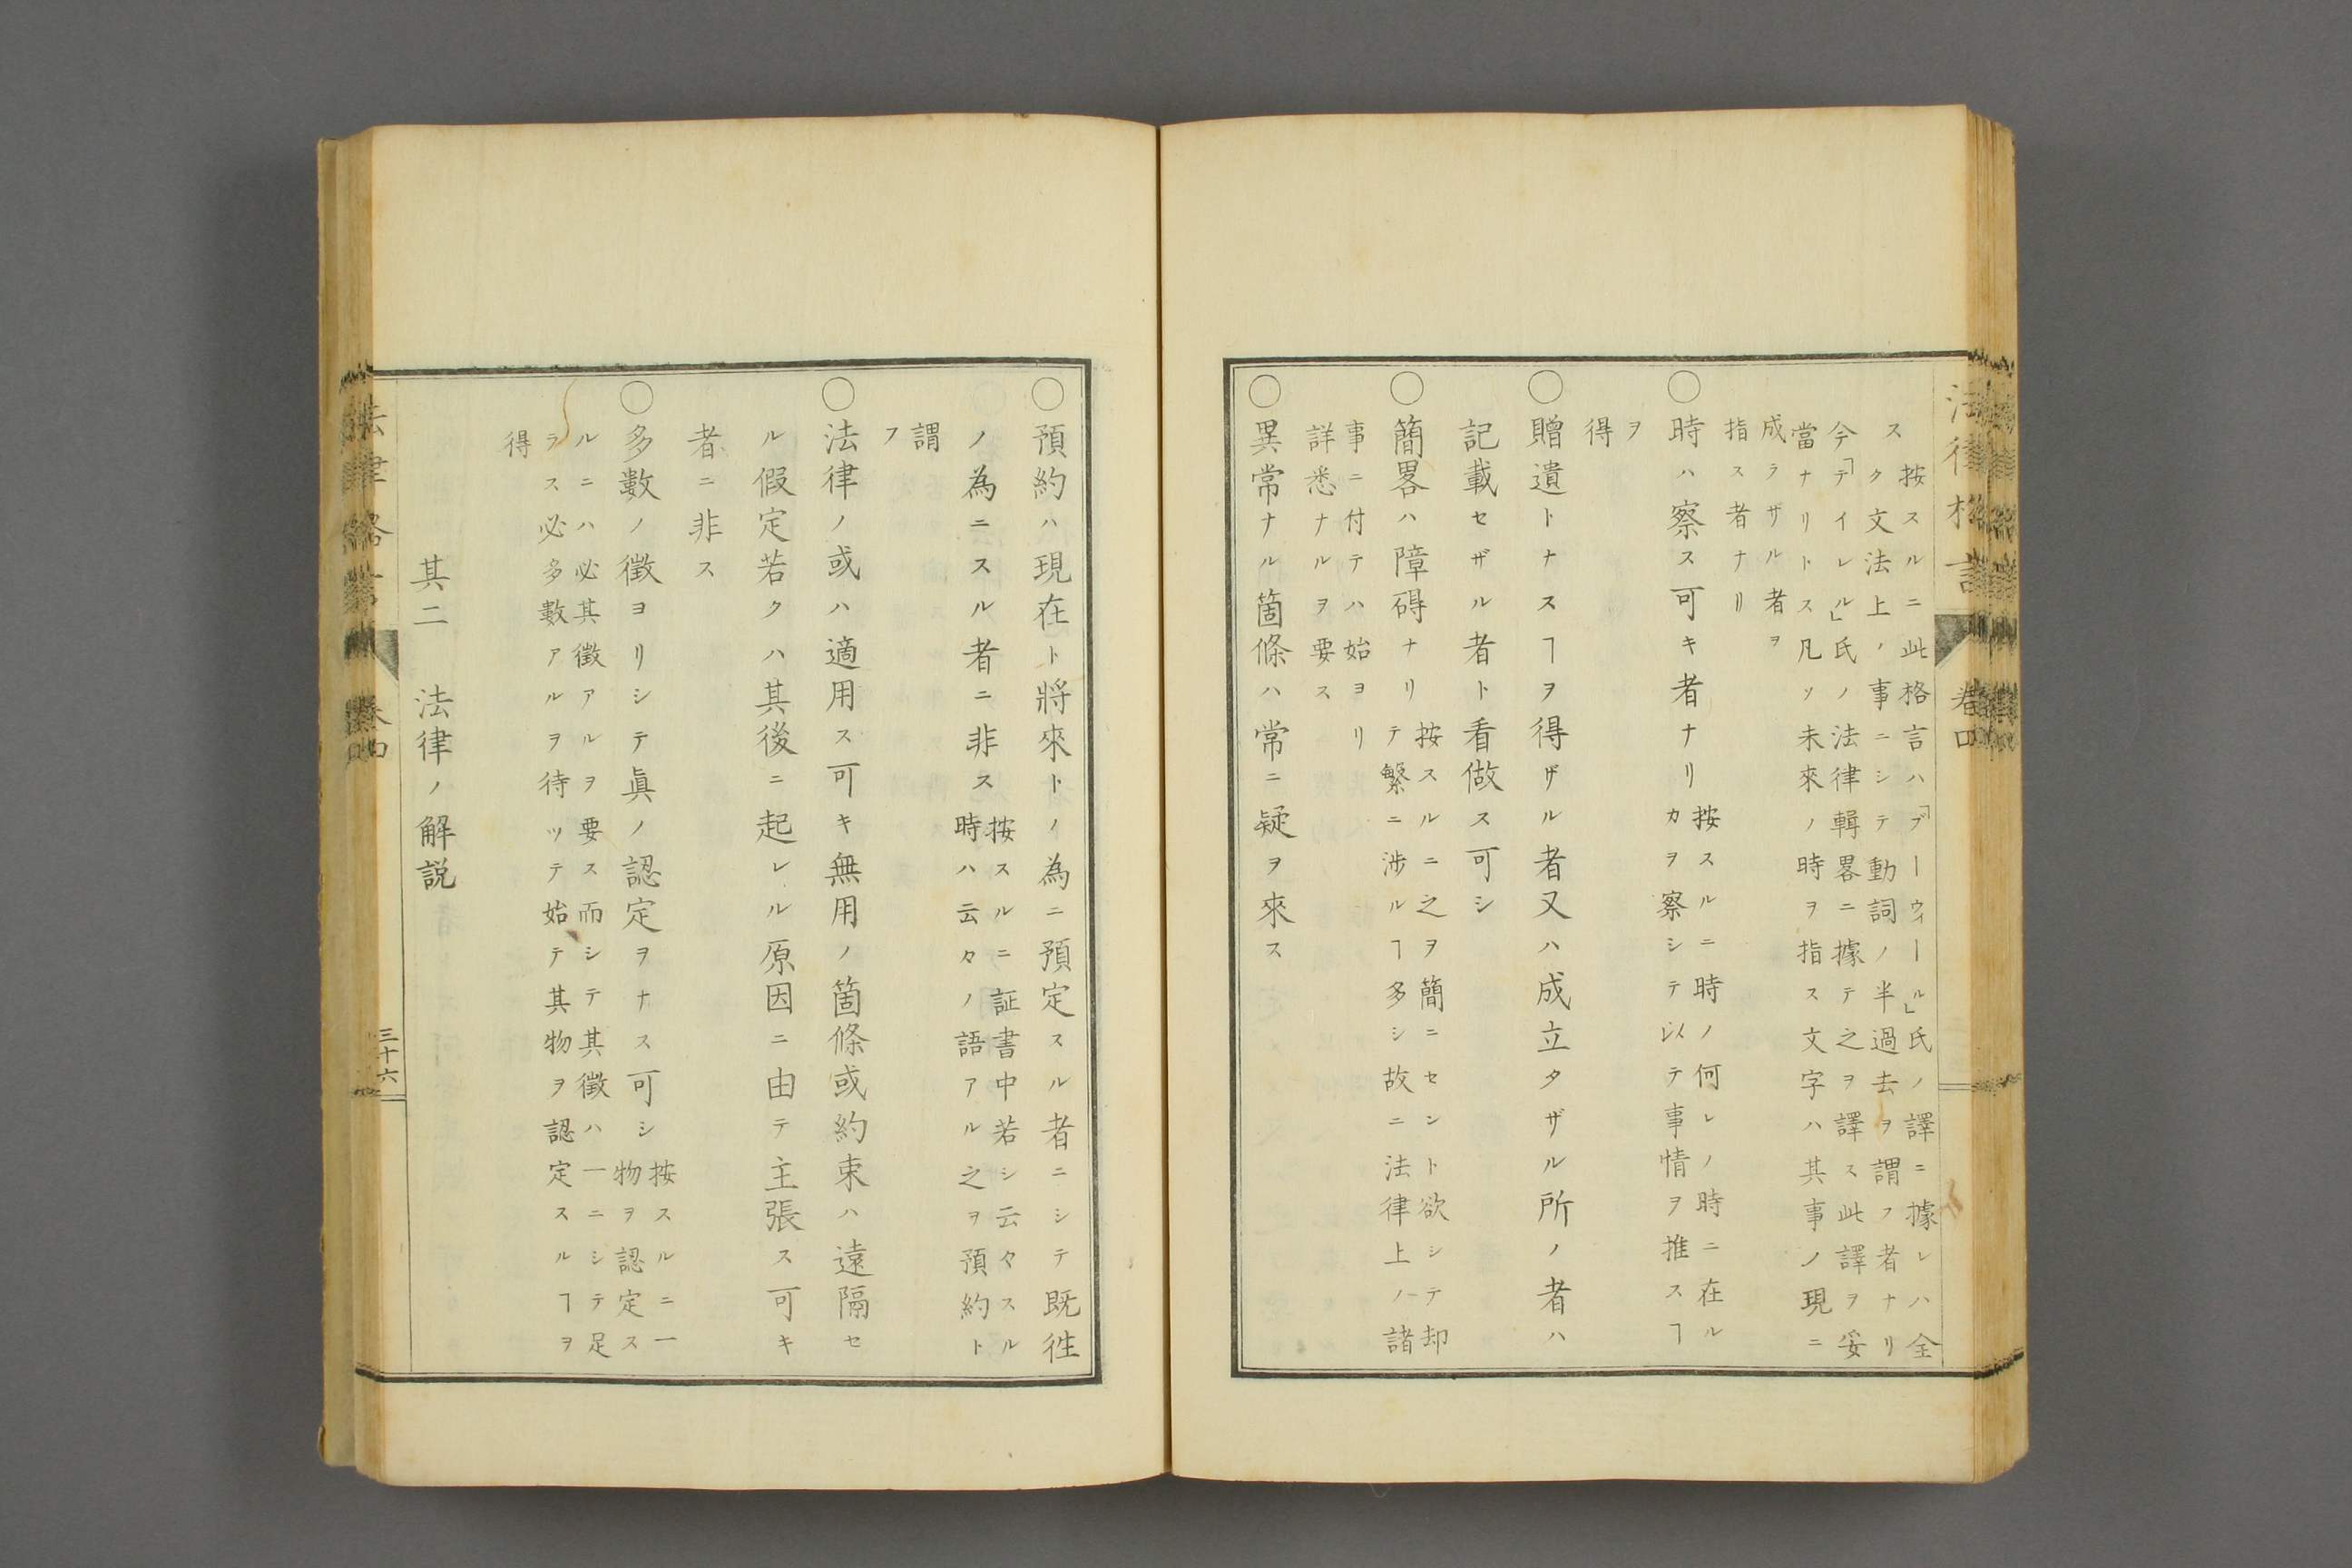 法律格言 卷四
ス
按スルニ此格言ハ「ブーウィール」氏ノ譯ニ據レハ全
ク文法上ノ事ニシテ動詞ノ半過去ヲ謂フ者ナリ
今「テイレル」氏ノ法律輯畧ニ據テ之ヲ譯ス此譯ヲ妥
當ナリトス凡ソ未來ノ時ヲ指ス文字ハ其事ノ現ニ
成ラザル者ヲ
指ス者ナリ
○時ハ察ス可キ者ナリ
按スルニ時ノ何レノ時ニ在ル
カヲ察シテ以テ事情ヲ推スヿ
ヲ
得
○贈遺トナスヿヲ得ザル者又ハ成立タザル所ノ者ハ
記載セザル者ト看做ス可シ
○簡畧ハ障碍ナリ
按スルニ之ヲ簡ニセント欲シテ却
テ繁ニ涉ルヿ多シ故ニ法律上ノ諸
事ニ付テハ始ヨリ
詳悉ナルヲ要ス
○異常ナル箇條ハ常ニ疑ヲ來ス
○預約ハ現在ト將來トノ為ニ預定スル者ニシテ既徃
ノ為ニスル者ニ非ス
按スルニ証書中若シ云々スル
時ハ云々ノ語アル之ヲ預約ト
謂
フ
○法律ノ或ハ適用ス可キ無用ノ箇條或約束ハ遠隔セ
ル假定若クハ其後ニ起レル原因ニ由テ主張ス可キ
者ニ非ス
○多數ノ徵ヨリシテ眞ノ認定ヲナス可シ
按スルニ一
物ヲ認定ス
ルニハ必其徵アルヲ要ス而シテ其徵ハ一ニシテ足
ラス必多數アルヲ待ッテ始テ其物ヲ認定スルヿヲ
得
其二 法律ノ解説
法律格言 卷四 三十六